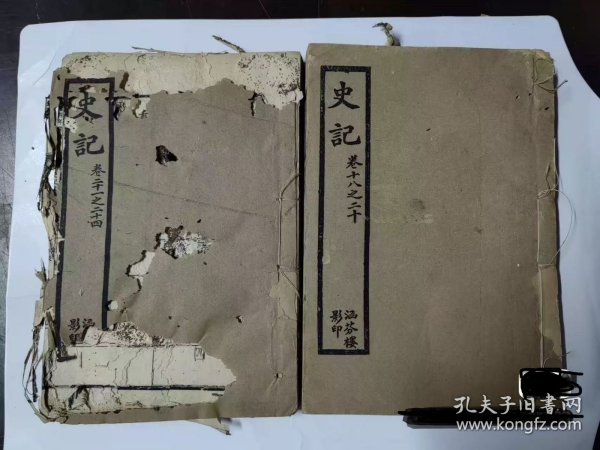 史記
卷二十一之二十四
涵
影印
史記
卷十八之二十
涵芬樓
影印
孔夫子旧书网
www.kongfz.com